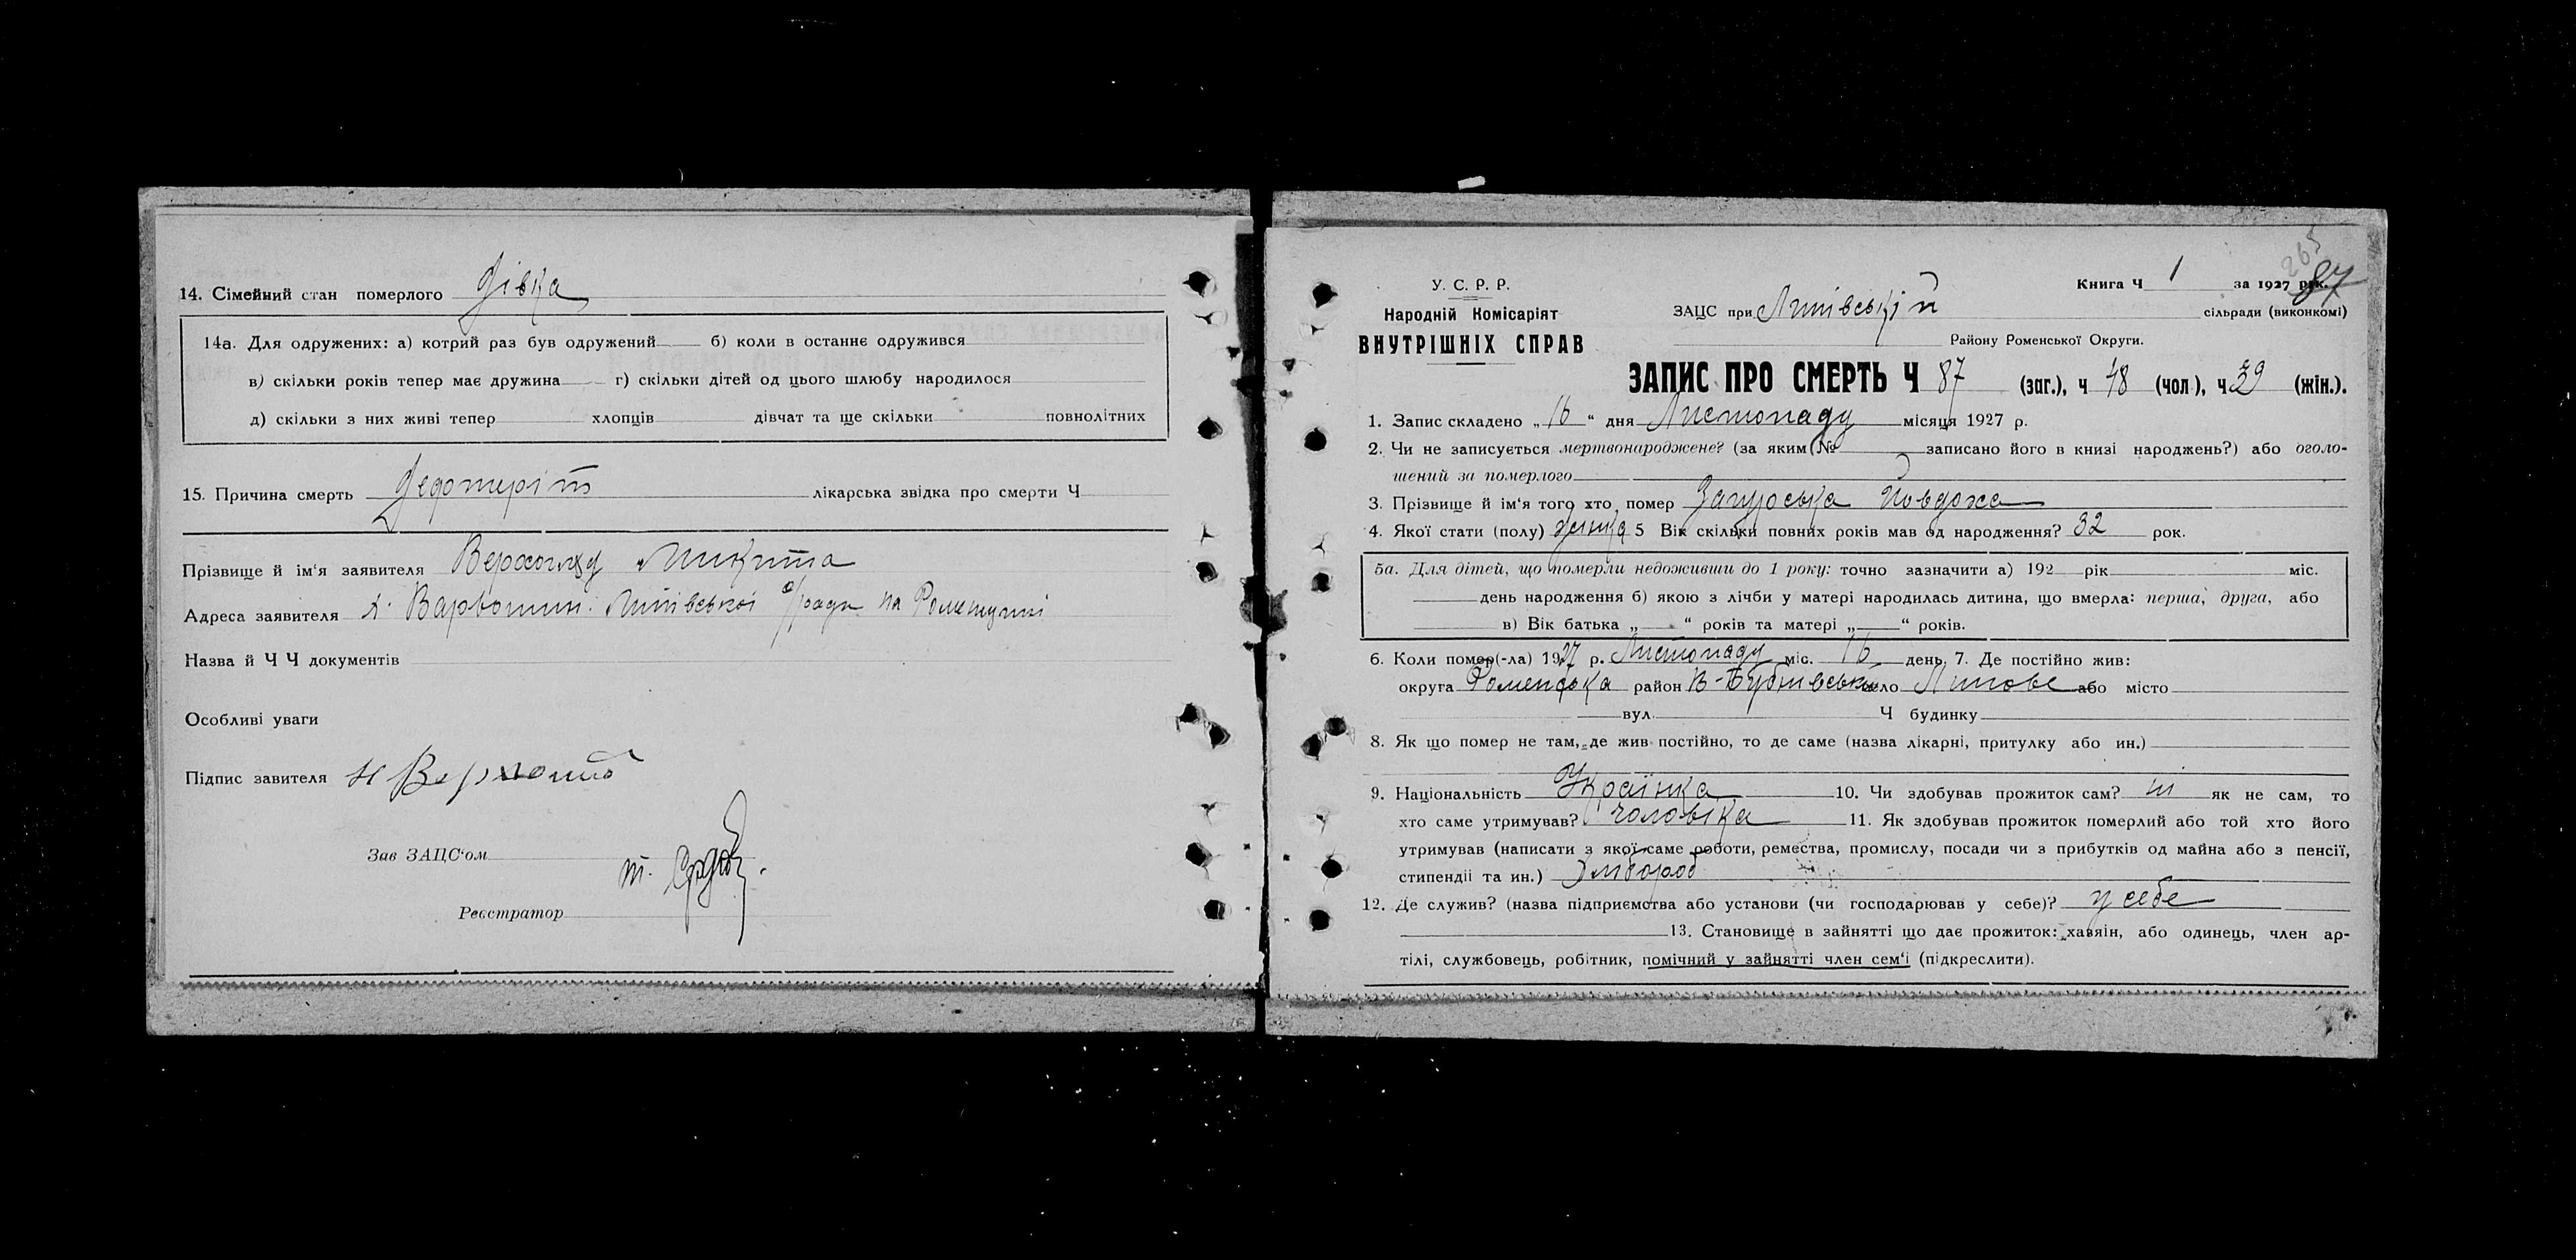 14. Сімейний стан померлого дівка
14а. Для одружених: а) котрий раз був одружений б) коли в останнє одружився
в) скільки років тепер має дружина г) скільки дітей од цього шлюбу народилося
д) скільки з них живі тепер хлопців дівчат та ще скільки повнолітних
15. Причина смерть лікарська звідка про смерти Ч
Прізвище й ім‘я заявителя Микита
Адреса заявителя х. Липівської с/ради на Роменщині
Назва й Ч Ч документів
Особливі уваги
Підпис завителя
Зав ЗАЦС‘ом
Реєстратор
265
87
У. С. Р. Р.
Книга Ч 1 за 1927 рік.
Народній Комісаріят
ЗАЦС при Липівській сільради (виконкомі)
ВНУТРІШНІХ СПРАВ
Району Роменської Округи.
ЗАПИС ПРО СМЕРТЬ Ч 87 (заг.), ч 48 (чол), ч 39 (жін.).
1. Запис складено „ 16 “ дня Листопаду місяця 1927 р.
2. Чи не записується мертвонароджене? (за яким (№ записано його в книзі народжень?) або оголо-
шений за померлого
3. Прізвище й ім‘я того хто помер Йовдоха
4. Якої статі (полу) жінка 5 Вік скільки повних років мав од народження? 32 рок.
5а. Для дітей, що померли недоживши до 1 року: точно зазначити а) 192 рік міс.
день народження б) якою з лічби у матері народилась дитина, що вмерла: перша, друга, або
в) Вік батька „ “ років та матері „ “ років.
6. Коли помер(-ла) 1927 р. Листопаду міс. 16 день. 7. Де постійно жив:
округа Роменська район В-Бубнівськ село Липове або місто
вул. Ч будинку
8. Як що помер не там, де жив постійно, то де саме (назва лікарні, притулку або ин.)
9. Національність Українка 10. Чи здобував прожиток сам? ні як не сам, то
хто саме утримував? чоловіка 11. Як здобував прожиток померлий або той хто його
утримував (написати з якої саме роботи, ремества, промислу, посади чи з прибутків од майна або з пенсії,
стипендії та ин.) Хлібороб
12. Де служив? (назва підприємства або установи (чи господарював у себе)? у себе
13. Становище в зайнятті що дає прожиток: хазяін, або одинець, член ар-
тілі, службовець, робітник, помічний у зайнятті член сем‘ї (підкреслити).